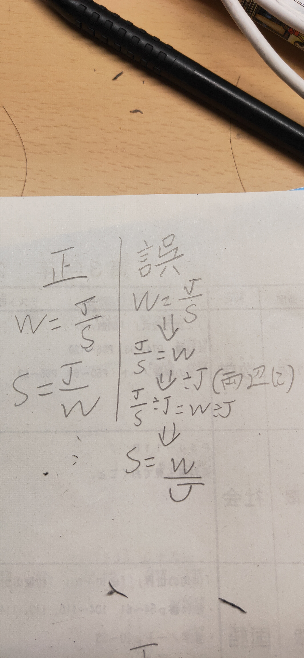 正
W = J/S
S = J/W
∴
誤
W = J/S
⇓
J/S = W
⇓ ÷J (両辺に)
J/S ÷ J = W ÷ J
⇓
S = W/J